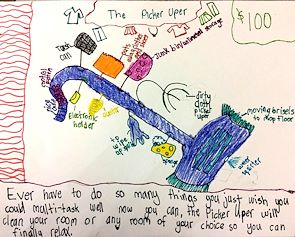 The Picker Uper
$100
Trash can
Junk bin/unwanted storage
dirty cloth picker uper
moving brisels to mop floor
Electronic holder
duster
sponge
water
Ever have to do so many things you just wish you
could multi-task well now you can, the Picker Uper will
clean your room or any room of your choice so you can
finally relax.